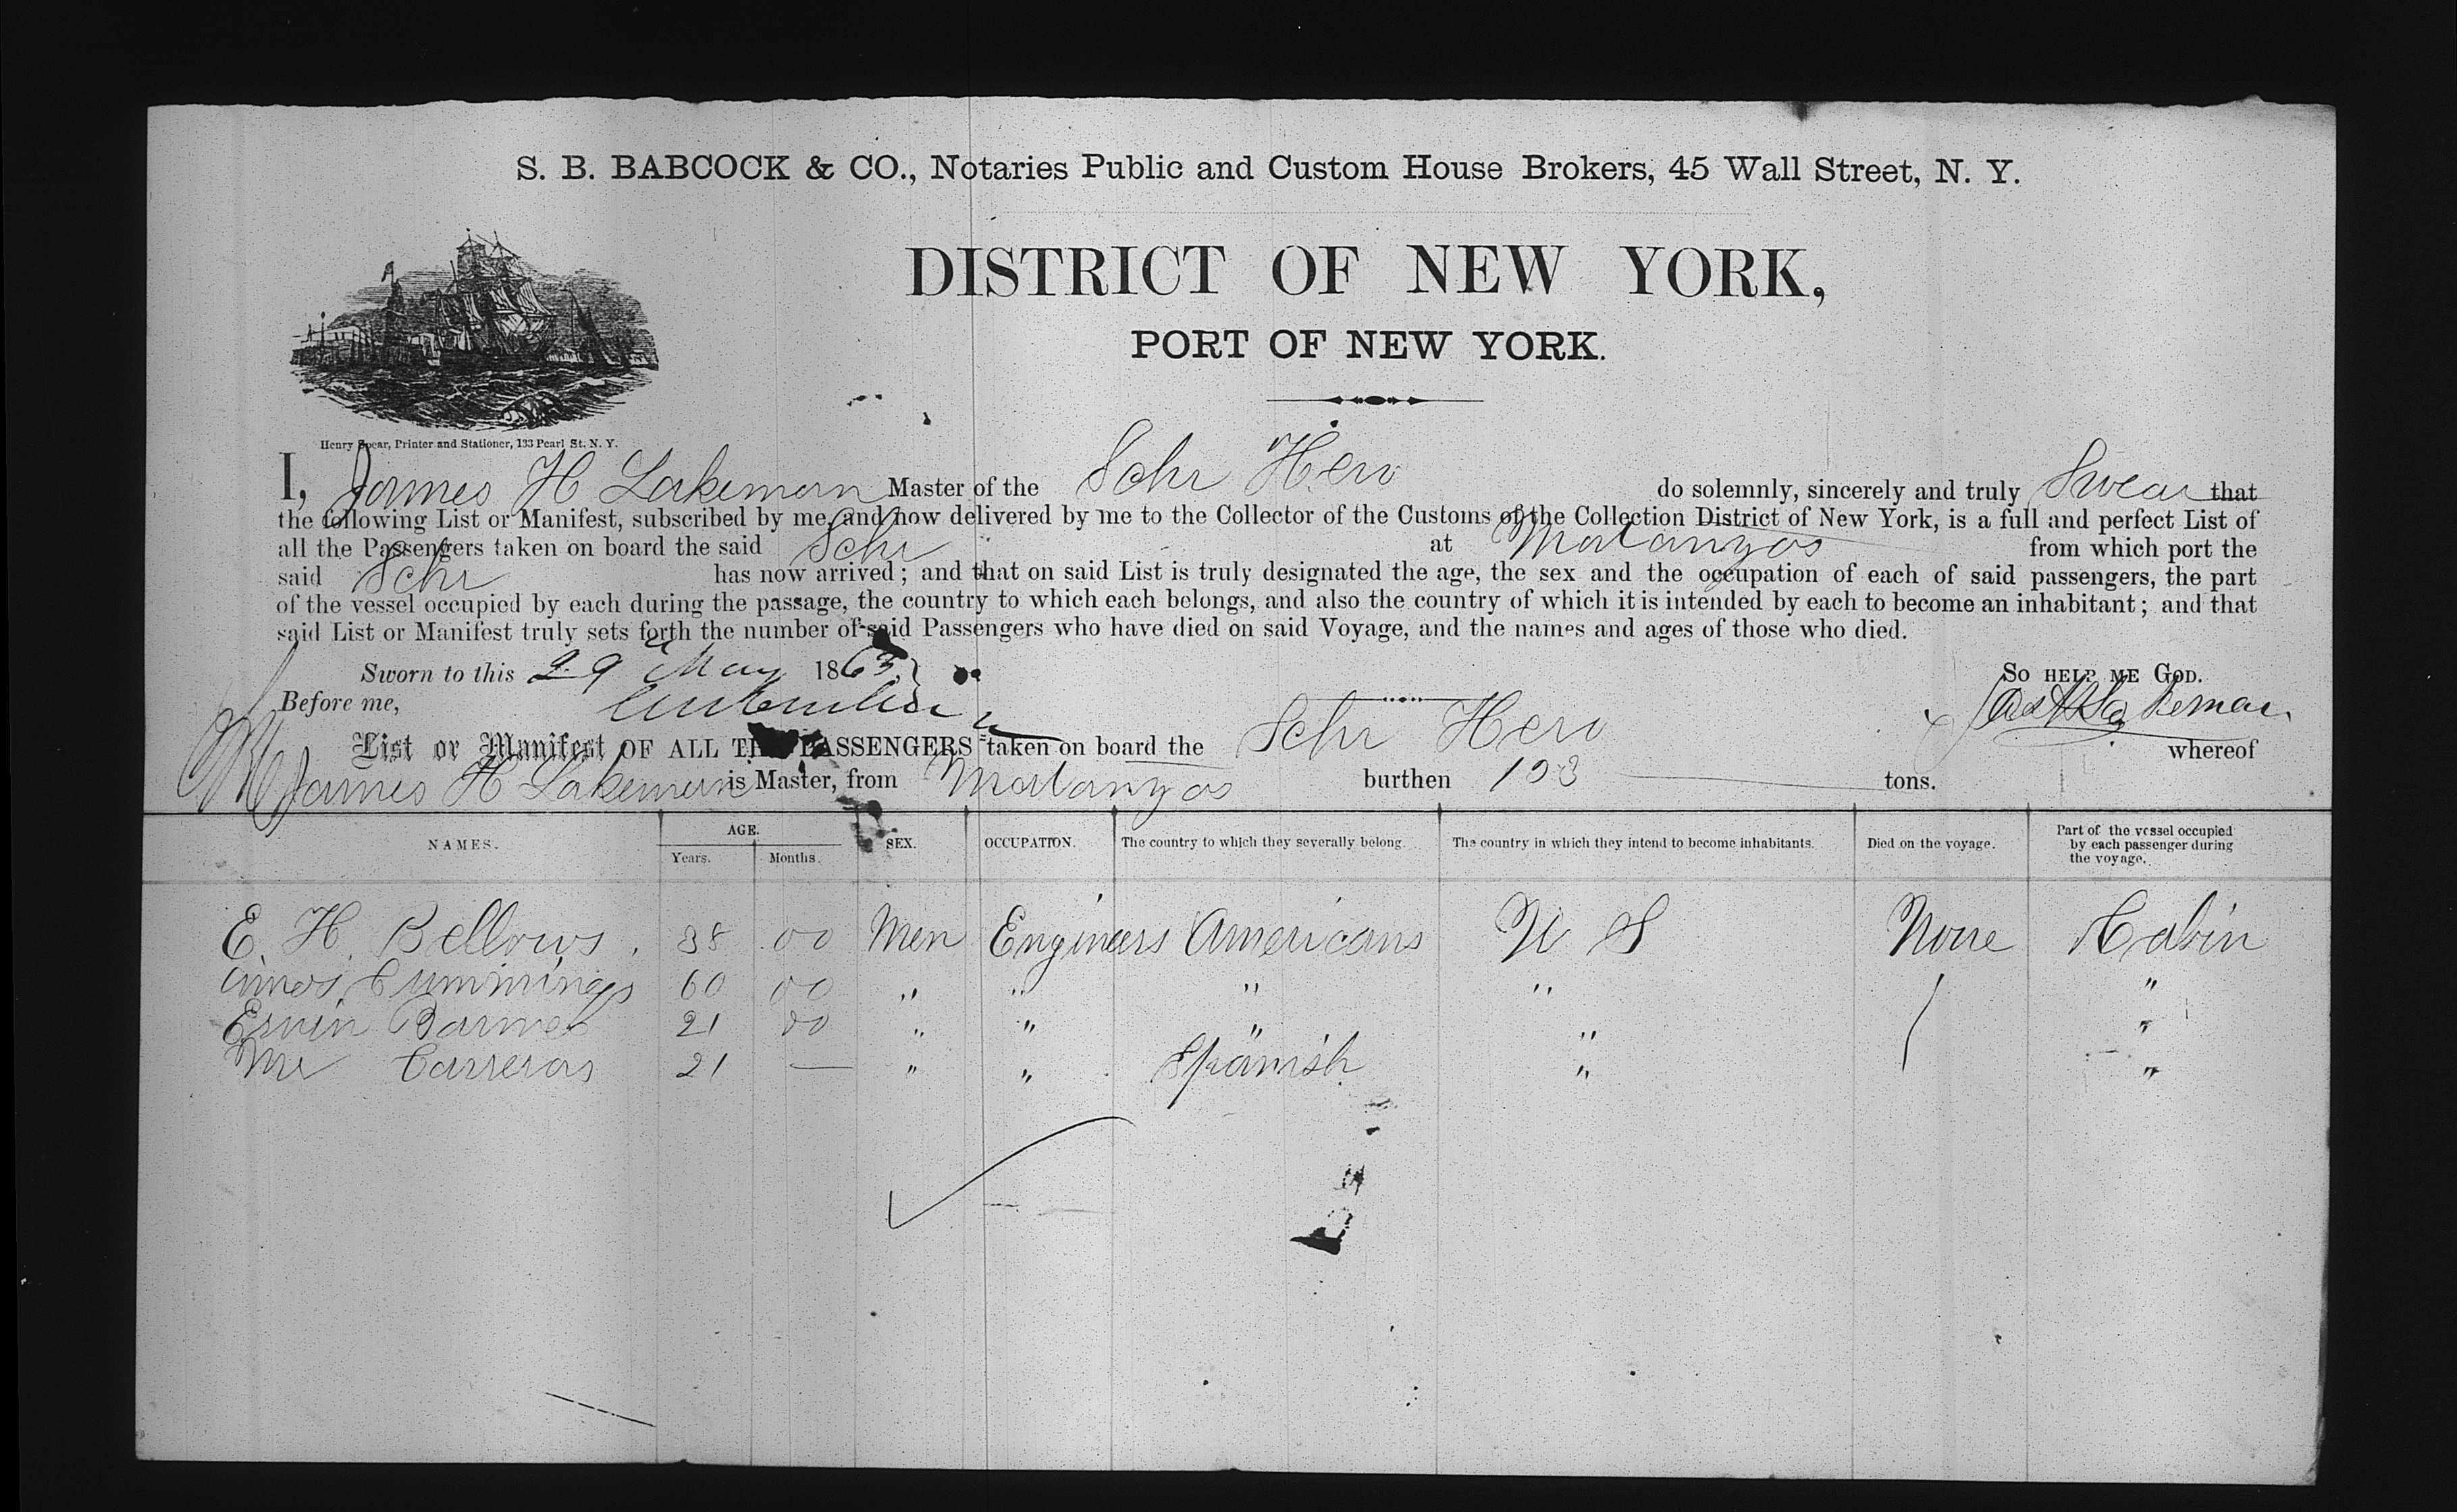 S. B. BABCOCK & CO., Notaries Public and Custom House Brokers, 45 Wall Street, N. Y.
DISTRICT OF NEW YORK,
PORT OF NEW YORK.
Henry Spear, Printer and Stationer, 133 Pearl St. N. Y.
I, James H Lakeman Master of the Schr Hero do solemnly, sincerely and truly Swear that
the following List or Manifest, subscribed by me, and now delivered by me to the Collector of the Customs of the Collection District of New York, is a full and perfect List of
all the Passengers taken on board the said Schr at Matanzas from which port the
said Schr has now arrived; and that on said List is truly designated the age, the sex and the occupation of each of said passengers, the part
of the vessel occupied by each during the passage, the country to which each belongs, and also the country of which it is intended by each to become an inhabitant; and that
said List or Manifest truly sets forth the number of said Passengers who have died on said Voyage, and the names and ages of those who died.
Sworn to this 29 May 1863 SO HELP ME GOD.
Before me, Jas H Lakeman
List or Manifest OF ALL THE PASSENGERS taken on board the Schr Hero whereof
James H Lakeman is Master, from Matanzas burthen 123 tons.
NAMES. AGE. Years. Months. SEX. OCCUPATION. The country to which they severally belong. The country in which they intend to become inhabitants. Died on the voyage. Part of the vessel occupied by each passenger during the voyage.
E. H. Bellows. 38 00 Men Engineers Americans U S None Cabin
Amos Cummings 60 00 " " " " "
Ervin Barmer 21 00 " " " " "
Mr Carreras 21 — " " Spanish " "